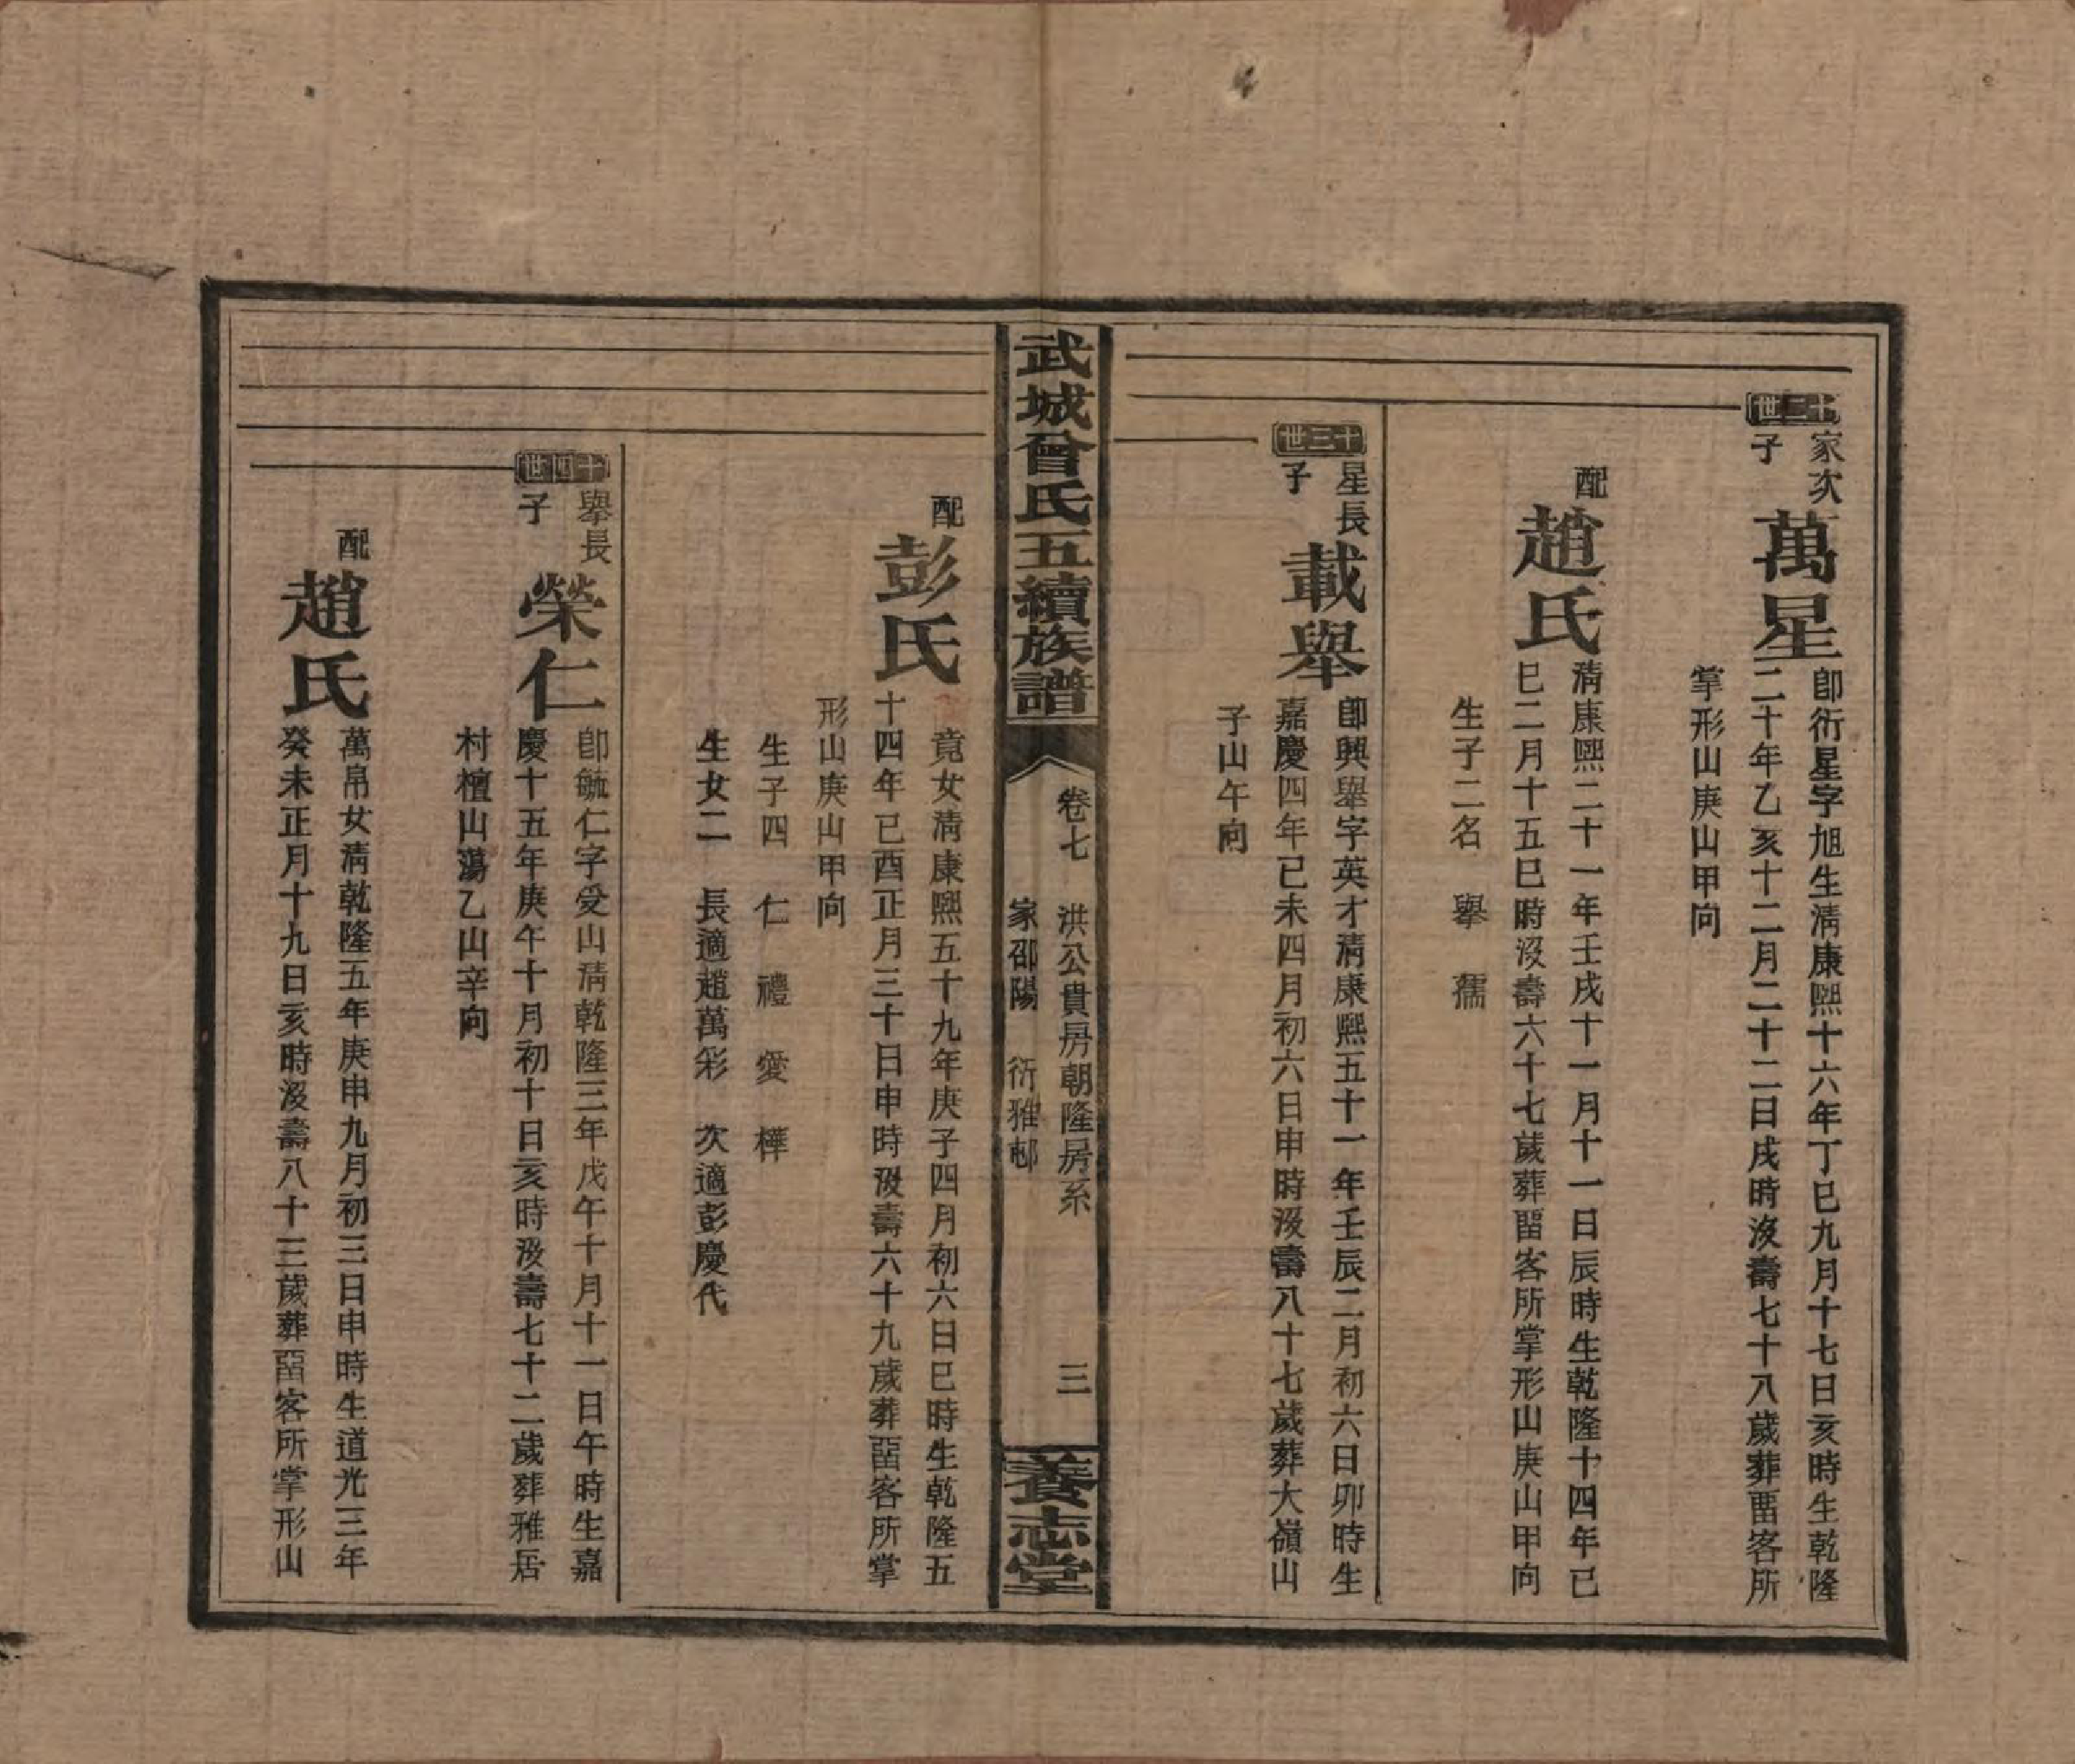 十二世
家次子
萬星
卽衍星字旭生淸康熙十六年丁巳九月十七日亥時生乾隆
二十年乙亥十二月二十二日戌時沒壽七十八歲葬畱客所
掌形山庚山甲向
配
趙氏
淸康熙二十一年壬戌十一月十一日辰時生乾隆十四年已
巳二月十五巳時沒壽六十七歲葬畱客所掌形山庚山甲向
生子二名 擧 儒
十三世
星長子
載舉
卽興舉字英才淸康熙五十一年壬辰二月初六日卯時生
嘉慶四年已未四月初六日申時沒壽八十七歲葬大嶺山
子山午向
武城曾氏五續族譜
卷七 洪公貴房朝隆房系 三
家邵陽 衍雅邨
養志堂
配
彭氏
竟女淸康熙五十九年庚子四月初六日巳時生乾隆五
十四年已酉正月三十日申時沒壽六十九歲葬畱客所掌
形山庚山甲向
生子四 仁 禮 愛 樺
生女二 長適趙萬彩 次適彭慶代
十四世
舉長子
榮仁
卽毓仁字受山淸乾隆三年戊午十月十一日午時生嘉
慶十五年庚午十月初十日亥時沒壽七十二歲葬雅居
村檀山蕩乙山辛向
配
趙氏
萬帛女淸乾隆五年庚申九月初三日申時生道光三年
癸未正月十九日亥時沒壽八十三歲葬畱客所掌形山